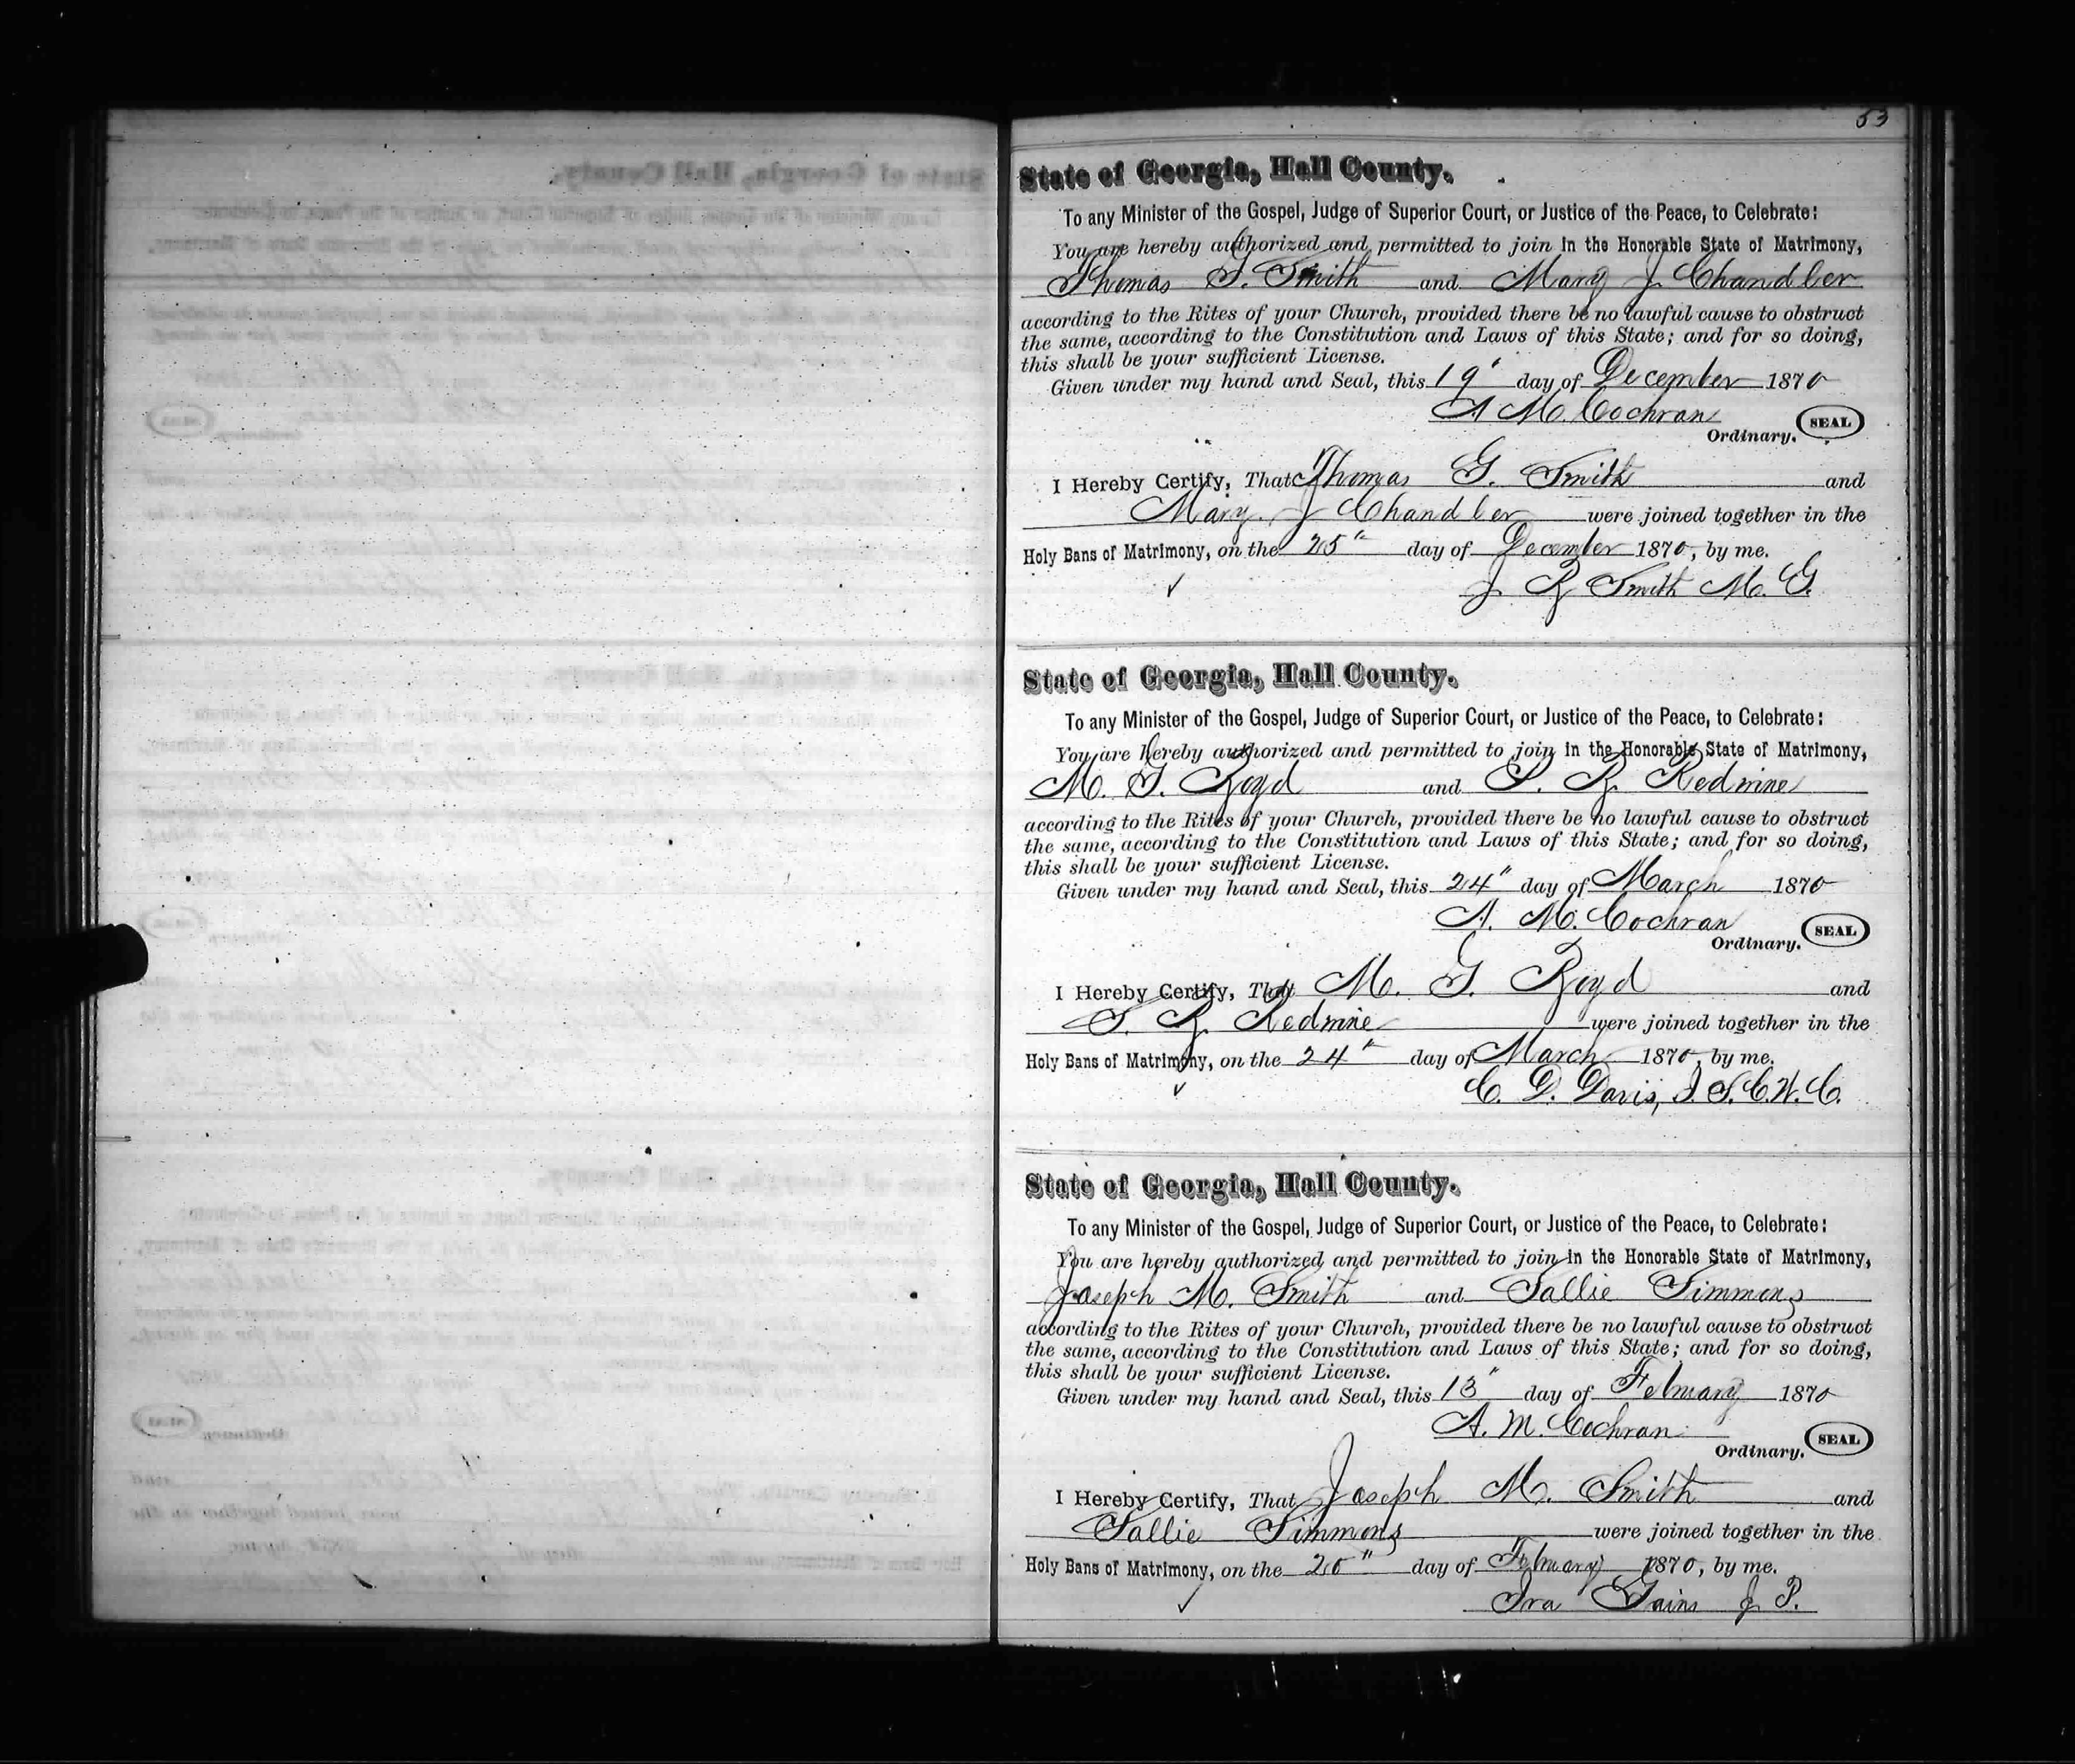 53
State of Georgia, Hall County.
To any Minister of the Gospel, Judge of Superior Court, or Justice of the Peace, to Celebrate:
You are hereby authorized and permitted to join in the Honorable State of Matrimony,
Thomas G. Smith and Mary J Chandler
according to the Rites of your Church, provided there be no lawful cause to obstruct
the same, according to the Constitution and Laws of this State; and for so doing,
this shall be your sufficient License.
Given under my hand and Seal, this 19" day of December 1870
A M. Cochran SEAL
Ordinary.
I Hereby Certify, That Thomas G. Smith and
Mary. J Chandler were joined together in the
Holy Bans of Matrimony, on the 25" day of December 1870, by me.
J R Smith M. G.
State of Georgia, Hall County.
To any Minister of the Gospel, Judge of Superior Court, or Justice of the Peace, to Celebrate:
You are hereby authorized and permitted to join in the Honorable State of Matrimony,
M. G. Boyd and S. R. Redmine
according to the Rites of your Church, provided there be no lawful cause to obstruct
the same, according to the Constitution and Laws of this State; and for so doing,
this shall be your sufficient License.
Given under my hand and Seal, this 24" day of March 1870
A. M. Cochran SEAL
Ordinary.
I Hereby Certify, That M. G. Boyd and
S. R. Redmine were joined together in the
Holy Bans of Matrimony, on the 24" day of March 1870, by me.
C. D. Davis,
State of Georgia, Hall County.
To any Minister of the Gospel, Judge of Superior Court, or Justice of the Peace, to Celebrate:
You are hereby authorized and permitted to join in the Honorable State of Matrimony,
Joseph M. Smith and Sallie Simmons
according to the Rites of your Church, provided there be no lawful cause to obstruct
the same, according to the Constitution and Laws of this State; and for so doing,
this shall be your sufficient License.
Given under my hand and Seal, this 13" day of February 1870
A. M. Cochran SEAL
Ordinary.
I Hereby Certify, That Joseph M. Smith and
Sallie Simmons were joined together in the
Holy Bans of Matrimony, on the 20" day of February 1870, by me.
Ira Gains J. P.